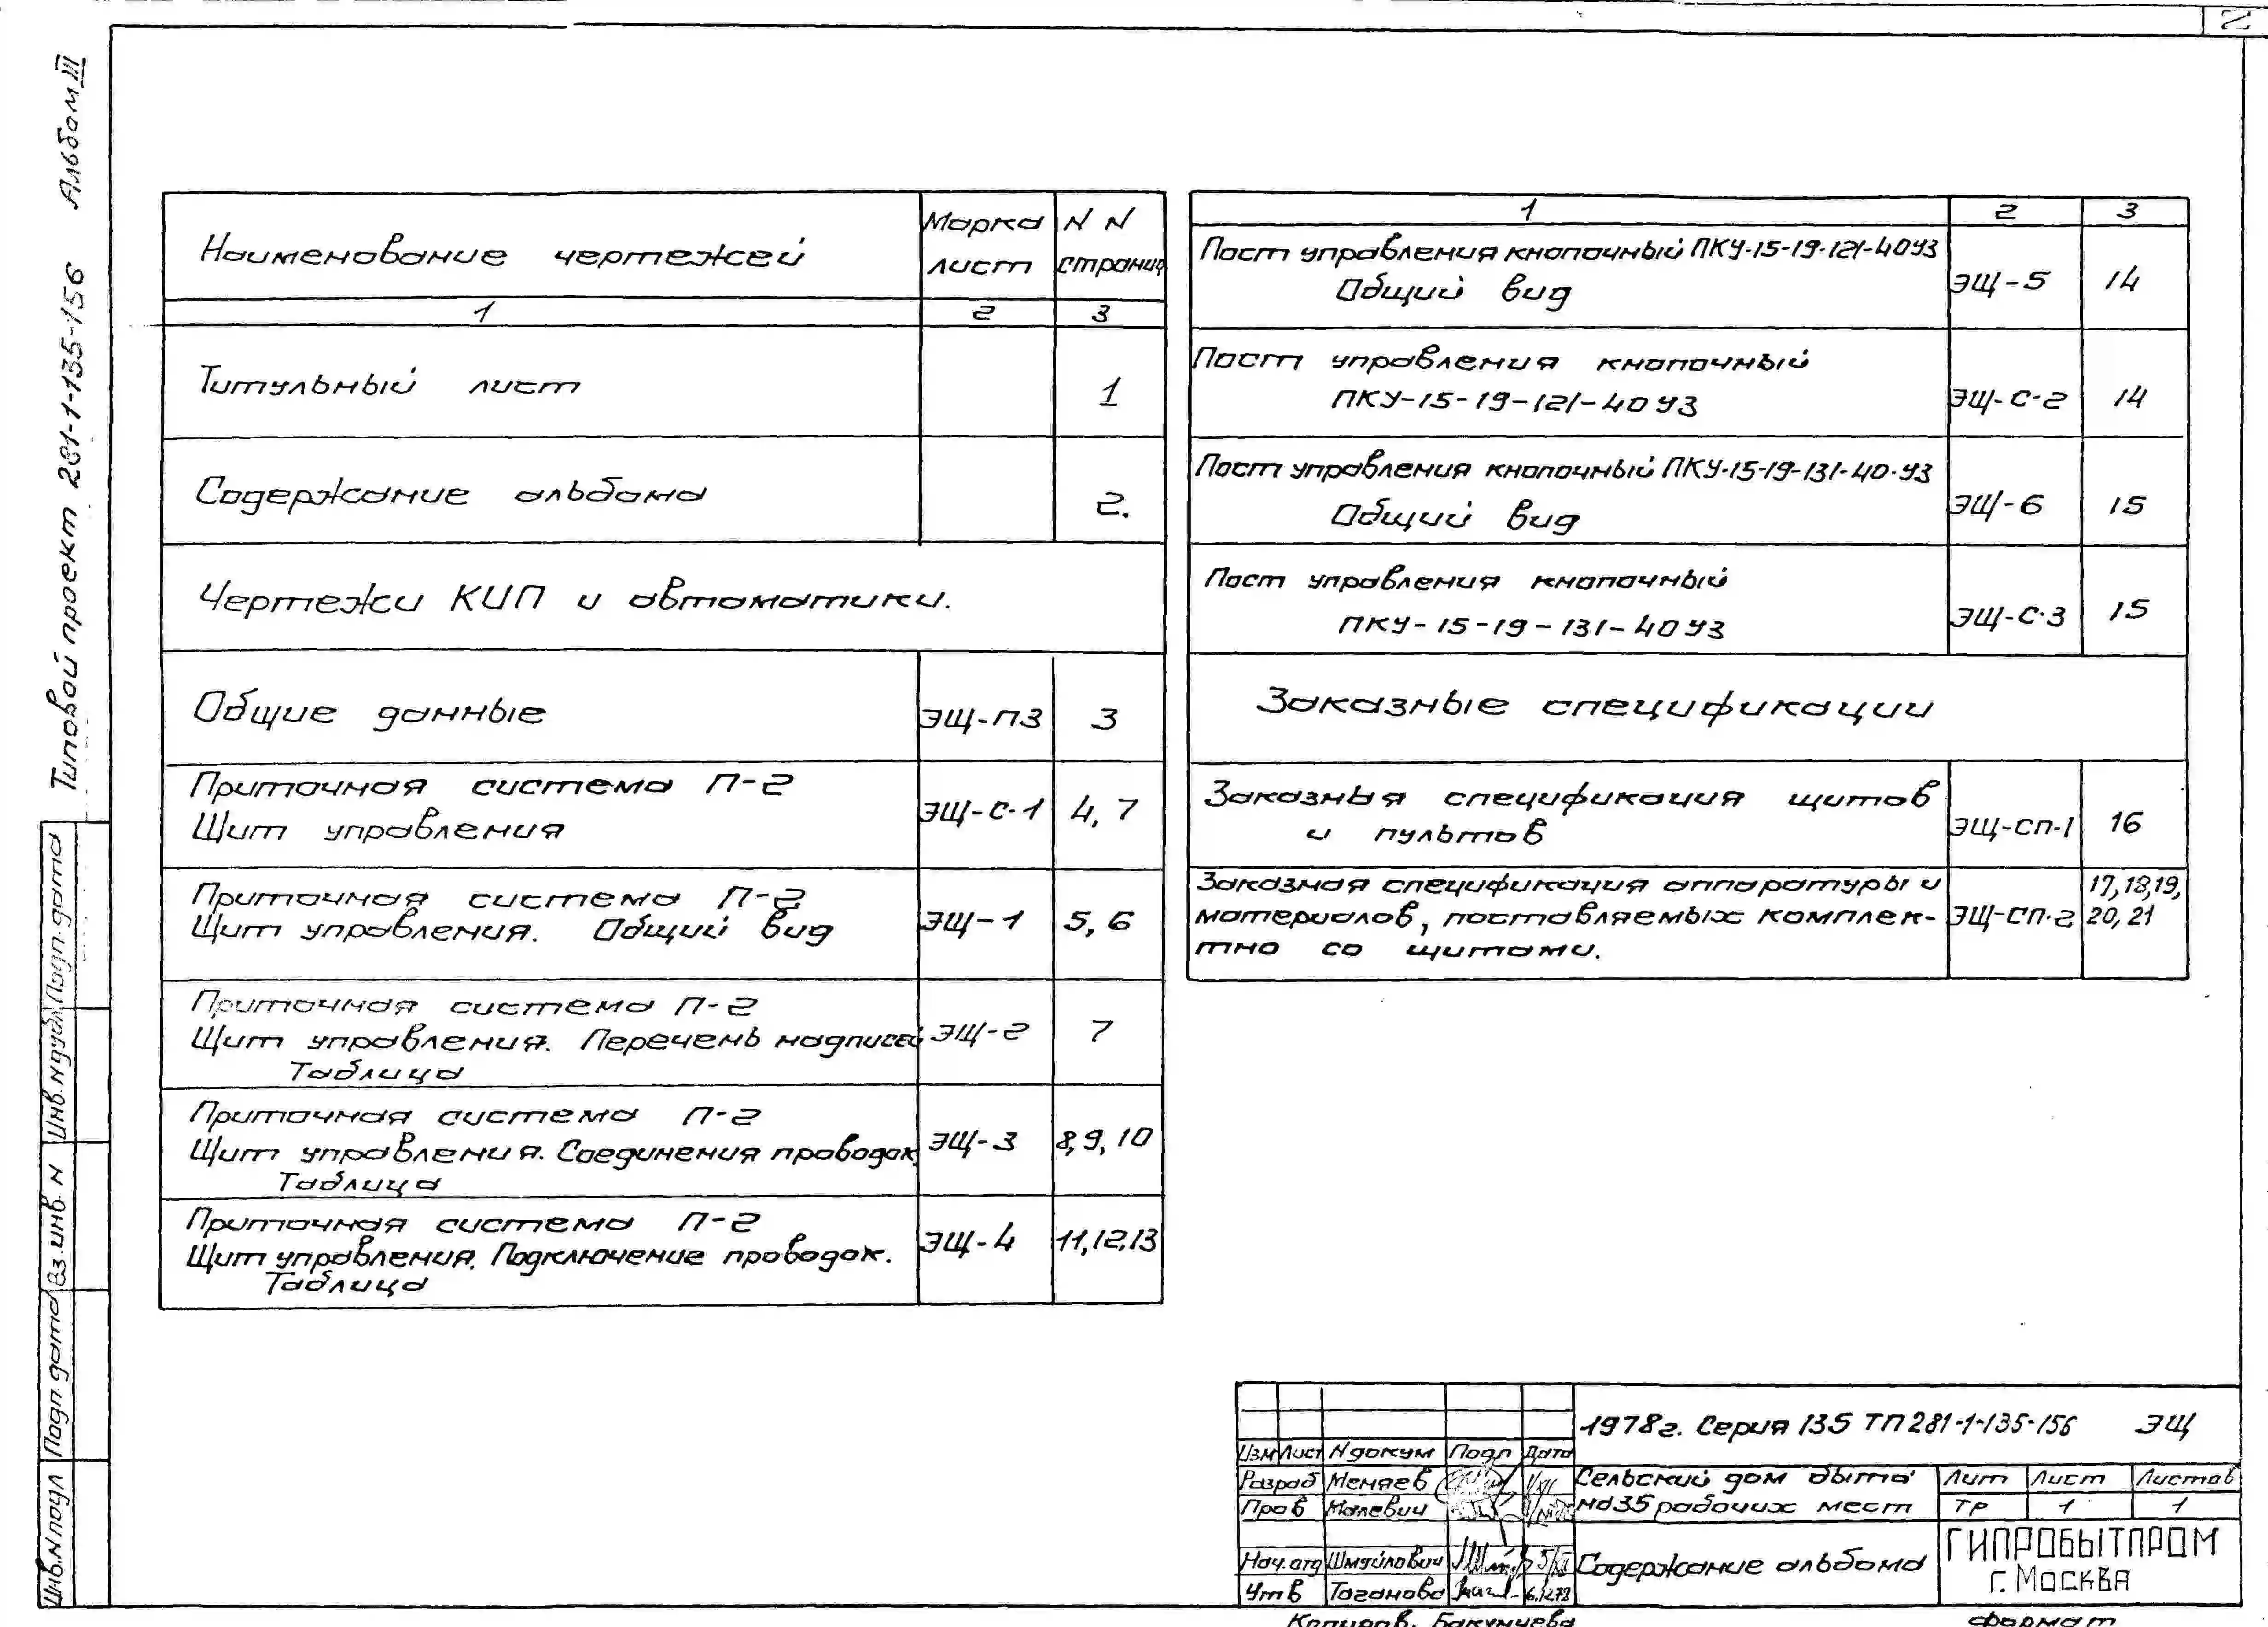 2
Типовой проект 281-1-135-156 Альбом III
Наименование чертежей
Марка
лист
N N
страниц
1 2 3
Титульный лист 1
Содержание альбома 2.
Чертежи КИП и автоматики.
Общие данные ЭЩ-ПЗ 3
Приточная система П-2
Щит управления ЭЩ-С-1 4, 7
Приточная система П-2
Щит управления. Общий вид ЭЩ-1 5, 6
Приточная система П-2
Щит управления. Перечень надписей ЭЩ-2 7
Таблица
Приточная система П-2
Щит управления. Соединения проводок. ЭЩ-3 8, 9, 10
Таблица
Приточная система П-2
Щит управления. Подключение проводок. ЭЩ-4 11, 12, 13
Таблица
1 2 3
Пост управления кнопочный ПКУ-15-19-121-40У3
Общий вид ЭЩ-5 14
Пост управления кнопочный
ПКУ-15-19-121-40У3 ЭЩ-С-2 14
Пост управления кнопочный ПКУ-15-19-131-40-У3
Общий вид ЭЩ-6 15
Пост управления кнопочный
ПКУ-15-19-131-40У3 ЭЩ-С-3 15
Заказные спецификации
Заказныя спецификация щитов
и пультов ЭЩ-СП-1 16
Заказная спецификация аппаратуры и 17, 18, 19,
материалов, поставляемых комплек- ЭЩ-СП-2 20, 21
тно со щитами.
1978г. Серия 135 ТП 281-1-135-156 ЭЩ
Изм Лист N докум Подп Дата
Разраб Меняев
Пров Малевич
Нач.отд Шмуйлович
Утв Таганова 6.12.78
Сельский дом быта
на 35 рабочих мест
Лит Лист Листов
ТР 1 1
Содержание альбома
ГИПРОБЫТПРОМ
г. Москва
Копиров. Бакумцева
формат
Инв.N подл Подп. дата Вз. инв. N Инв.N дубл Подп. дата